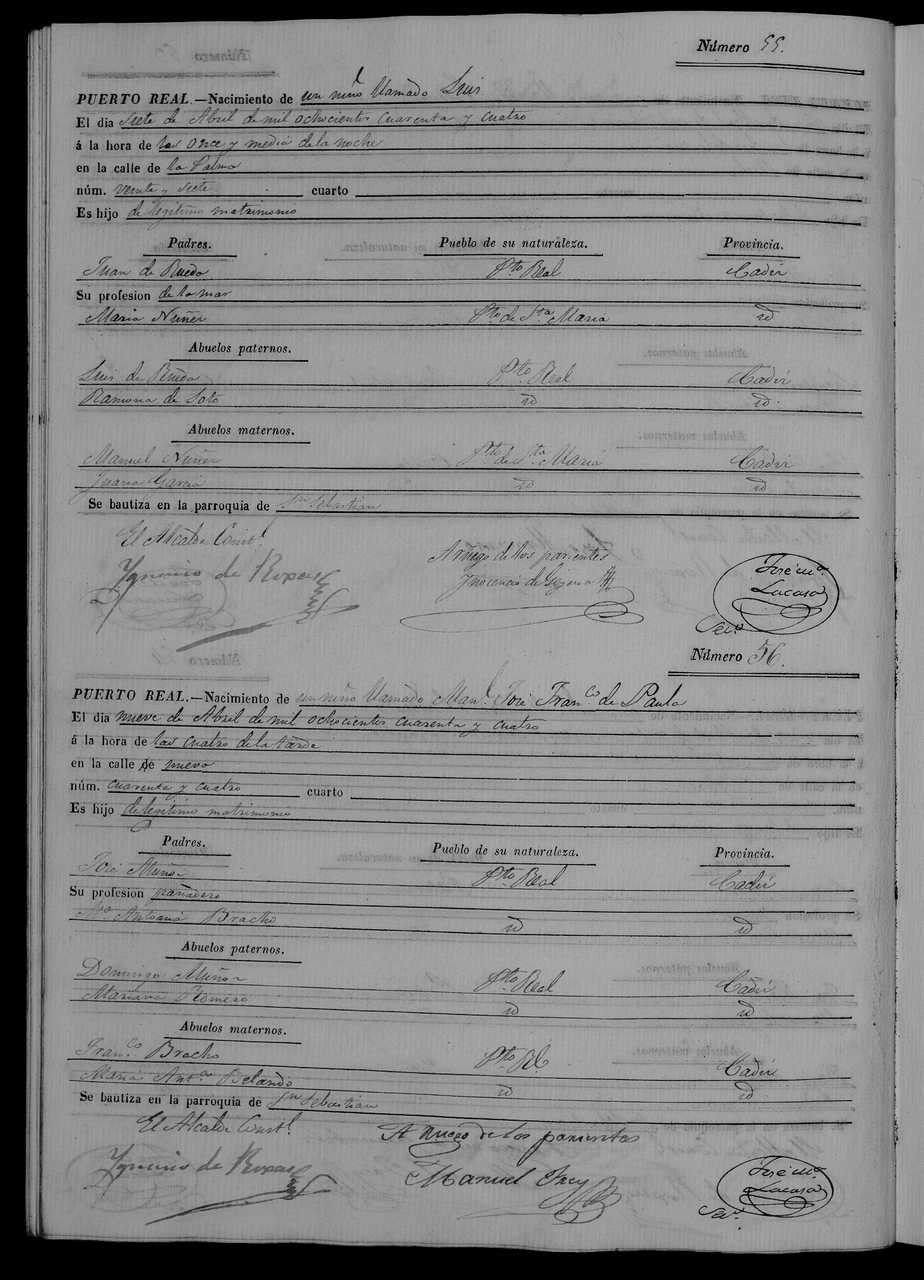 Número 55.
PUERTO REAL.—Nacimiento de un niño llamado Luis
El dia siete de Abril de mil ochocientos cuarenta y cuatro
á la hora de las once y media de la noche
en la calle de la Palma
núm. veinte y siete cuarto
Es hijo de legitimo matrimonio
Padres. Pueblo de su naturaleza. Provincia.
Juan de Rueda Pto Real Cadiz
Su profesion de la mar
Maria Nuñez Pto de Sta Maria id
Abuelos paternos.
Luis de Rueda Pto Real Cadiz
Ramona de Soto id id.
Abuelos maternos.
Manuel Nuñez Pto de Sta Maria Cadiz
Juana Garcia id id
Se bautiza en la parroquia de Sn Sebastian
El Alcalde Constl.
A ruego de los parientes
Ignacio de
Inocencio de
José Ma.
Lacasa
Seco.
Número 56.
PUERTO REAL.—Nacimiento de un niño llamado Manl. José Franco de Paula
El dia nueve de Abril de mil ochocientos cuarenta y cuatro
á la hora de las cuatro de la tarde
en la calle de nueva
núm. cuarenta y cuatro cuarto
Es hijo de legitimo matrimonio
Padres. Pueblo de su naturaleza. Provincia.
José Muñoz Pto Real Cadiz
Su profesion panadero
Ma. Antonia Bracho id id
Abuelos paternos.
Domingo Muñoz Pto Real Cadiz
Mariana Romero id id
Abuelos maternos.
Franco Bracho Pto Rl. Cadiz
Maria Anta. Belando id id
Se bautiza en la parroquia de Sn Sebastian
El Alcalde Constl.
A ruego de los parientes
Ignacio de
Manuel
José Ma.
Lacasa
Seco.